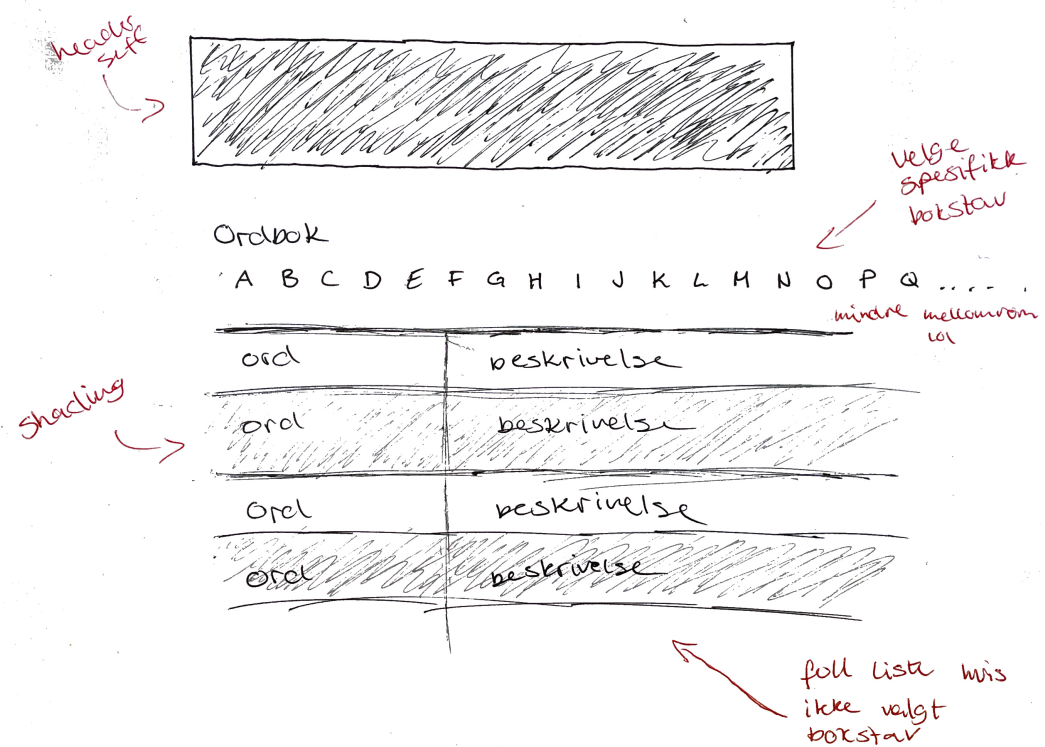 header
velge
spesifikk
bokstav
Ordbok
A B C D E F G H I J K L M N O P Q .....
mindre mellomrom
lol
ord beskrivelse
shading
ord beskrivelse
ord beskrivelse
ord beskrivelse
full liste hvis
ikke valgt
bokstav